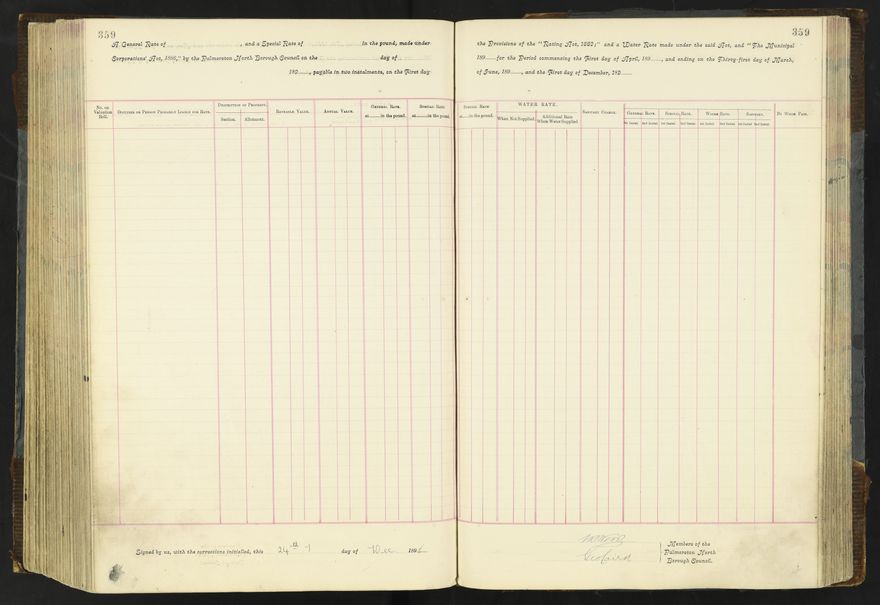 359
A General Rate of , and a Special Rate of in the pound, made under
Corporations' Act, 1886," by the Palmerston North Borough Council on the day of
189 , payable in two instalments, on the First day
No. on Valuation Roll.
Occupier or Person Primarily Liable for Rate.
Description of Property.
Section.
Allotment.
Rateable Value.
Annual Value.
General Rate
at in the pound.
Special Rate
at in the pound.
Signed by us, with the corrections initialled, this 24th day of Dec 189
359
the Provisions of the "Rating Act, 1882;" and a Water Rate made under the said Act, and "The Municipal
189 for the Period commencing the First day of April, 189 , and ending on the Thirty-first day of March,
of June, 189 , and the First day of December, 189
Special Rate
at in the pound.
WATER RATE.
When Not Supplied.
Additional Rate When Water Supplied.
Sanitary Charge.
General Rate.
Special Rate.
Water Rate.
Sanitary.
1st Instmt. 2nd Instmt. 1st Instmt. 2nd Instmt. 1st Instmt. 2nd Instmt. 1st Instmt. 2nd Instmt.
By Whom Paid.
Members of the
Palmerston North
Borough Council.